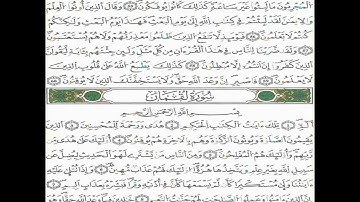 المجرمون ما لبثوا غير ساعة كذلك كانوا يؤفكون ٥٥ وقال الذين أوتوا العلم
والإيمن لقد لبثتم في كتب الله إلى يوم البعث فهذا يوم البعث ولكنكم
كنتم لا تعلمون ٥٦ فيومئذ لا ينفع الذين ظلموا معذرتهم ولا هم يستعتبون
٥٧ ولقد ضربنا للناس في هذا القرءان من كل مثل ولئن جئتهم بءاية ليقولن
الذين كفروا إن أنتم إلا مبطلون ٥٨ كذلك يطبع الله على قلوب الذين
لا يعلمون ٥٩ فاصبر إن وعد الله حق ولا يستخفنك الذين لا يوقنون ٦٠
سورة لقمان
بسم الله الرحمن الرحيم
الم ١ تلك ءايت الكتب الحكيم ٢ هدى ورحمة للمحسنين ٣ الذين
يقيمون الصلوة ويؤتون الزكوة وهم بالءاخرة هم يوقنون ٤ أولئك على هدى من
ربهم وأولئك هم المفلحون ٥ ومن الناس من يشتري لهو الحديث ليضل عن
سبيل الله بغير علم ويتخذها هزوا أولئك لهم عذاب مهين ٦ وإذا تتلى عليه
ءايتنا ولى مستكبرا كأن لم يسمعها كأن في أذنيه وقرا فبشره بعذاب أليم ٧
إن الذين ءامنوا وعملوا الصلحت لهم جنت النعيم ٨ خلدين فيها وعد الله حقا وهو